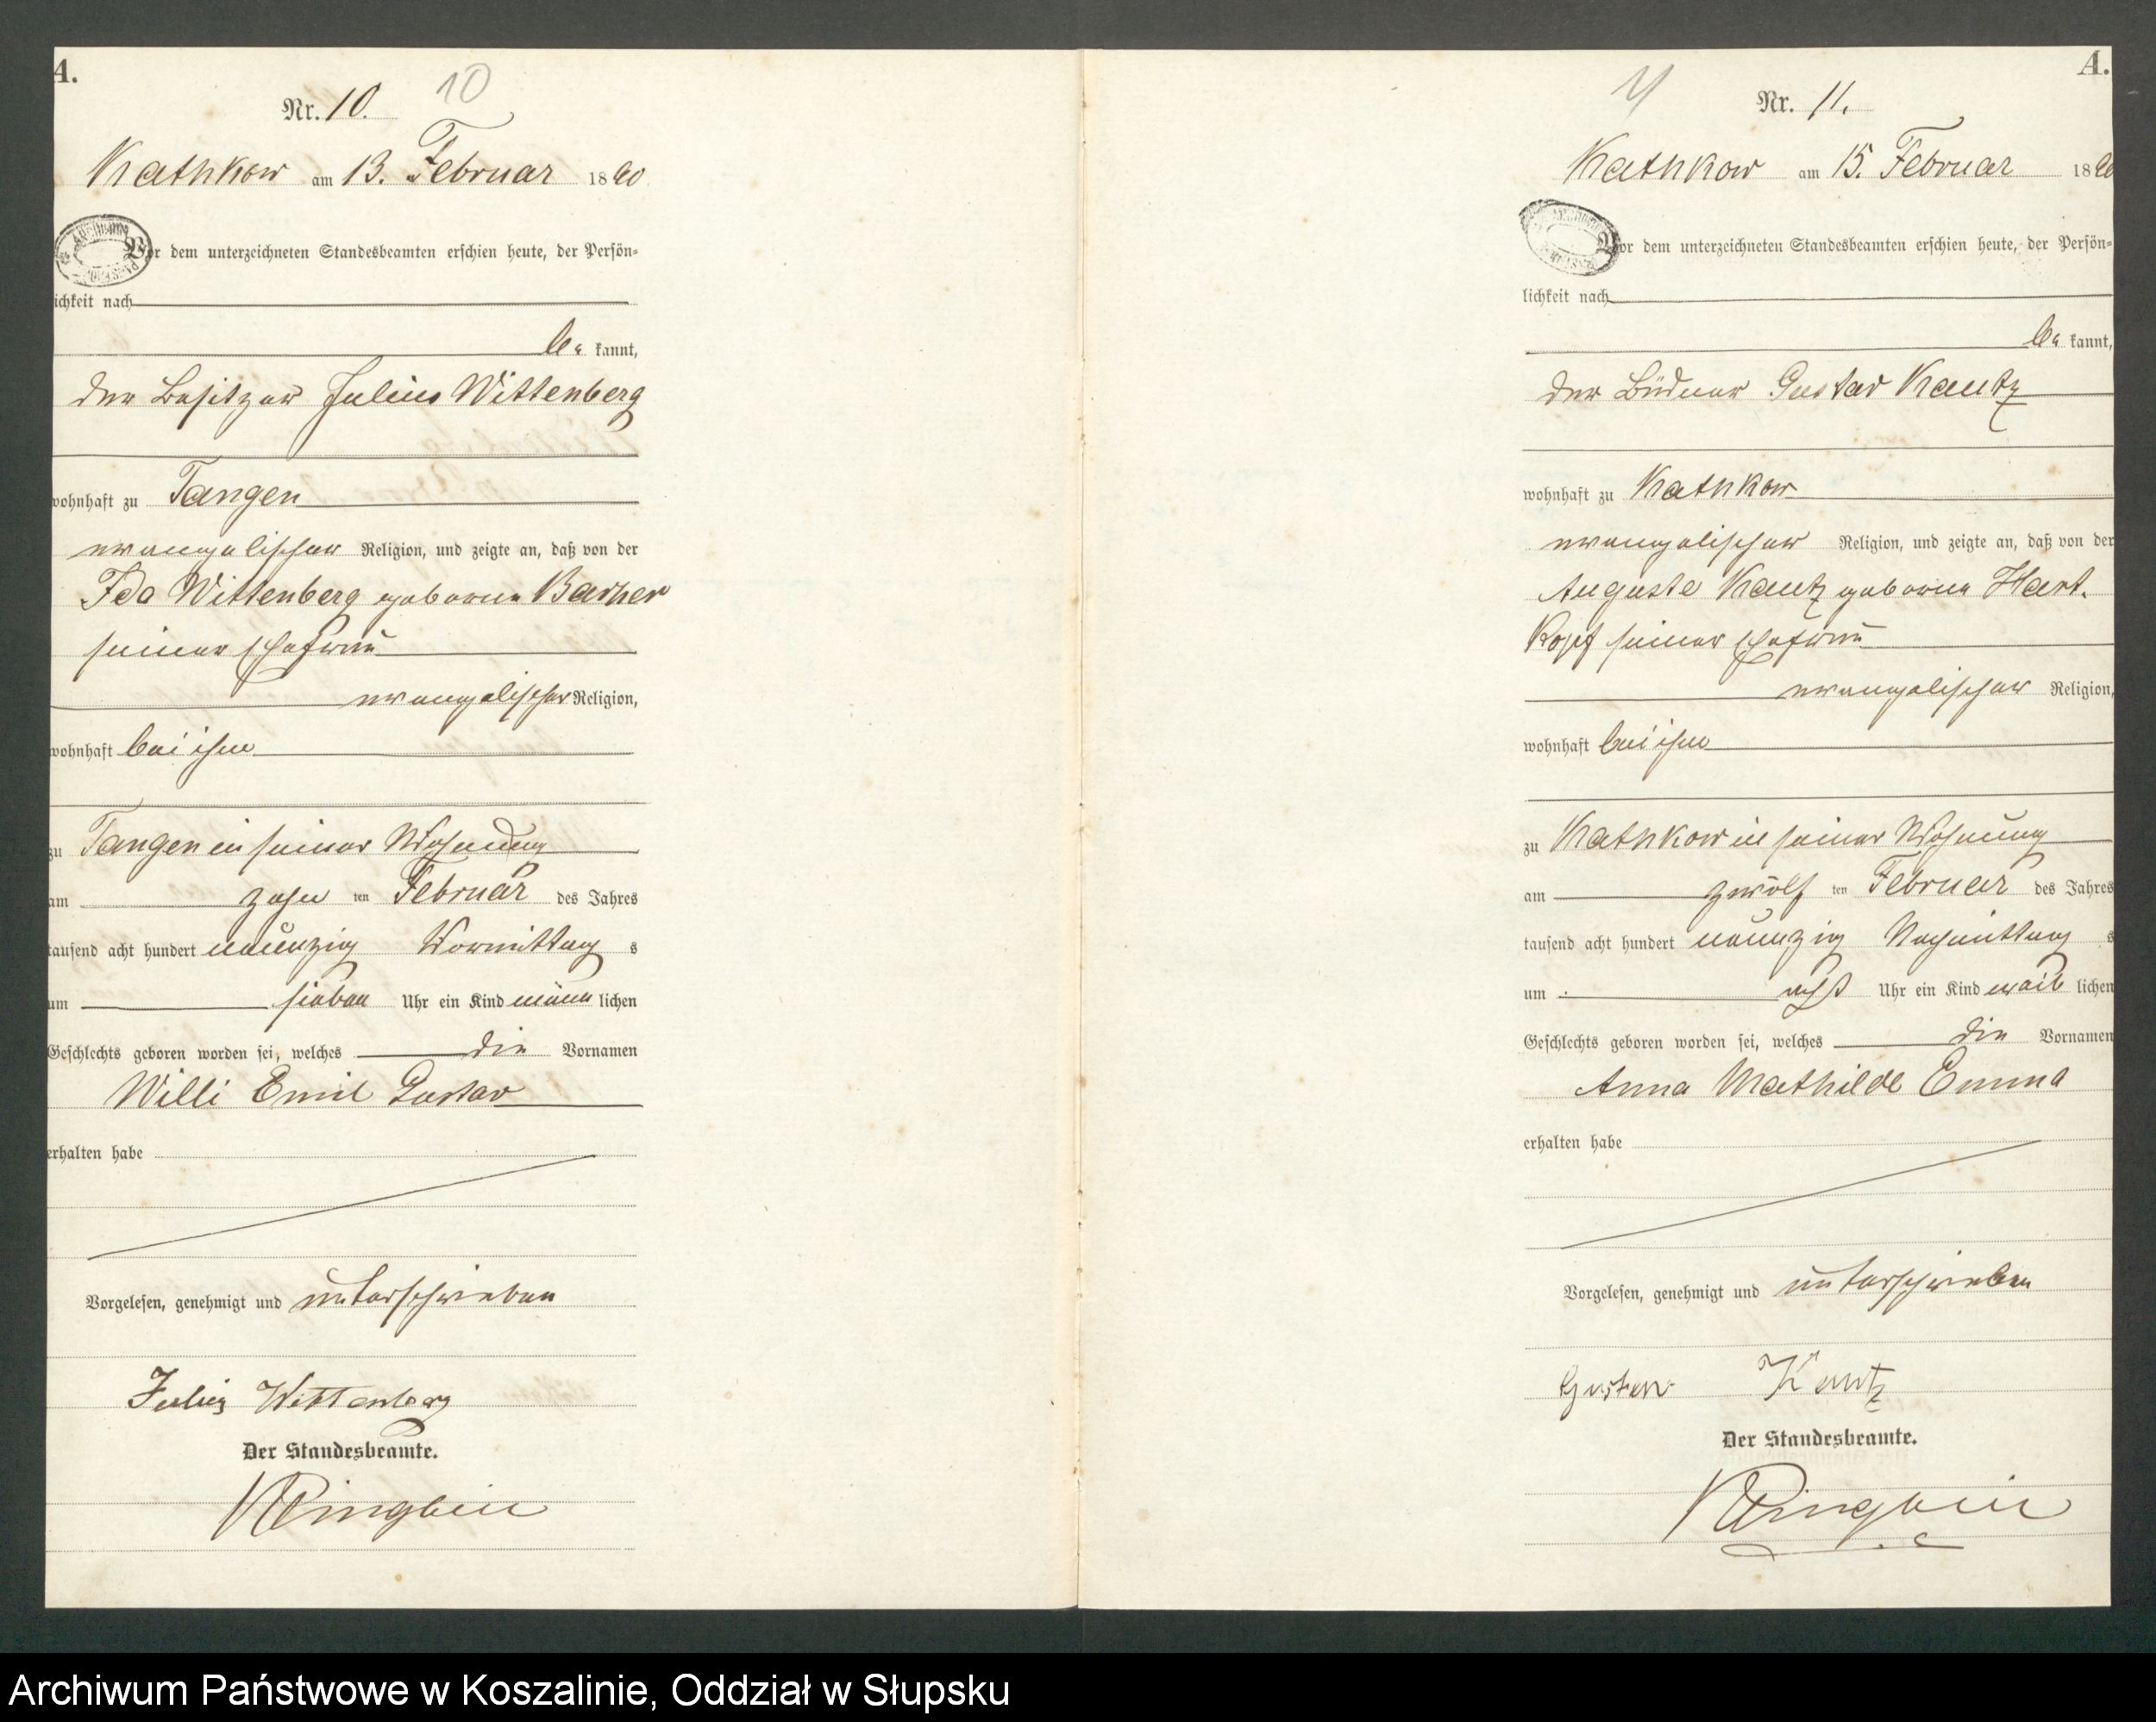 A.
Nr. 10.
10
Kathkow am 13. Februar 1890
Vor dem unterzeichneten Standesbeamten erschien heute, der Persön-
lichkeit nach
be kannt,
der Besitzer Julius Wittenberg
wohnhaft zu Tangen
evangelischer Religion, und zeigte an, daß von der
Ida Wittenberg geborene Barner
seiner Ehefrau
evangelischer Religion,
wohnhaft bei ihm
zu Tangen in seiner Wohnung
am zehn ten Februar des Jahres
tausend acht hundert neunzig Vormittag s
um sieben Uhr ein Kind männ lichen
Geschlechts geboren worden sei, welches die Vornamen
Willi Emil Gustav
erhalten habe
Vorgelesen, genehmigt und unterschrieben
Julius Wittenberg
Der Standesbeamte.
A.
Nr. 11.
Kathkow am 15. Februar 1890
Vor dem unterzeichneten Standesbeamten erschien heute, der Persön-
lichkeit nach
be kannt,
der Büdner Gustav Kautz
wohnhaft zu Kathkow
evangelischer Religion, und zeigte an, daß von der
Auguste Kautz geborene Hart-
kopf seiner Ehefrau
evangelischer Religion,
wohnhaft bei ihm
zu Kathkow in seiner Wohnung
am zwölf ten Februar des Jahres
tausend acht hundert neunzig Nachmittag s
um acht Uhr ein Kind weib lichen
Geschlechts geboren worden sei, welches die Vornamen
Anna Mathilde Emma
erhalten habe
Vorgelesen, genehmigt und unterschrieben
Gustav Kautz
Der Standesbeamte.
Archiwum Państwowe w Koszalinie, Oddział w Słupsku